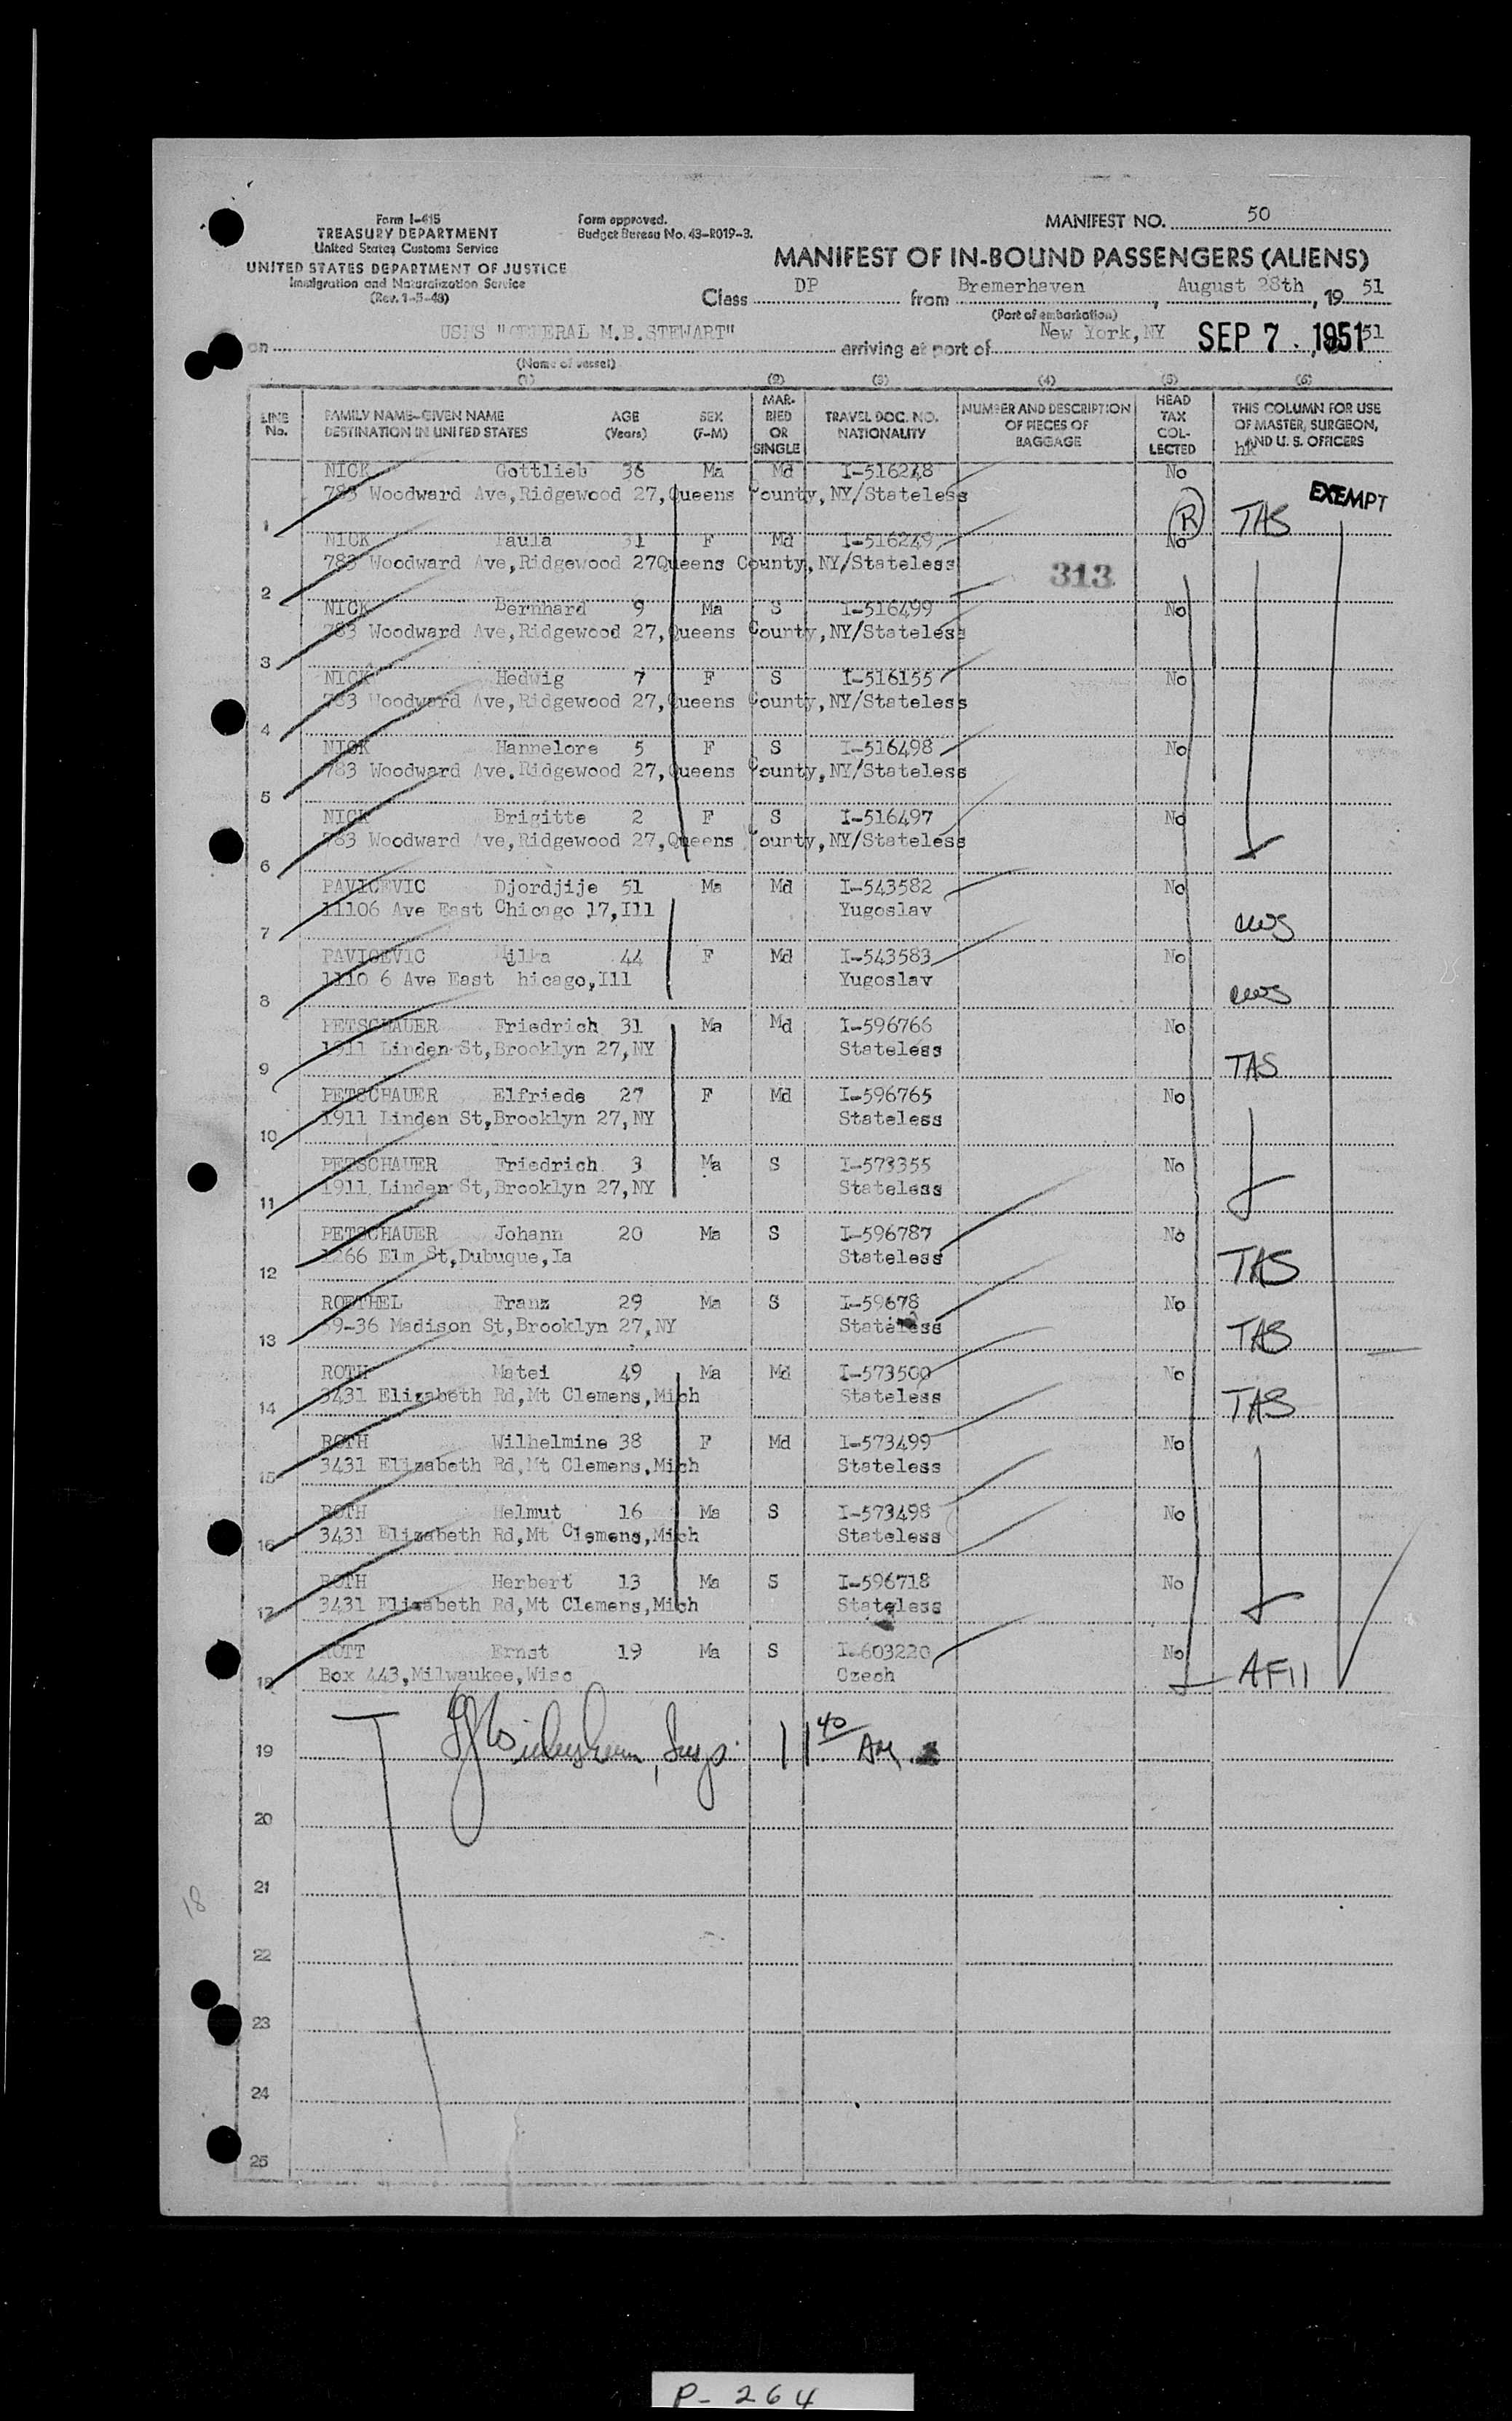 Form I-415
TREASURY DEPARTMENT
United States Customs Service
UNITED STATES DEPARTMENT OF JUSTICE
Immigration and Naturalization Service
(Rev. 1-5-48)
Form approved.
Budget Bureau No. 43-R019-3.
MANIFEST NO. 50
MANIFEST OF IN-BOUND PASSENGERS (ALIENS)
Class DP from Bremerhaven, August 28th, 19 51
(Port of embarkation)
on USNS "GENERAL M.B.STEWART" arriving at port of New York, NY SEP 7 . 1951 51
(Name of vessel)
(1) (2) (3) (4) (5) (6)
LINE No. FAMILY NAME-GIVEN NAME DESTINATION IN UNITED STATES AGE (Years) SEX (F-M) MARRIED OR SINGLE TRAVEL DOC. NO. NATIONALITY NUMBER AND DESCRIPTION OF PIECES OF BAGGAGE HEAD TAX COLLECTED THIS COLUMN FOR USE OF MASTER, SURGEON, AND U. S. OFFICERS
NICK Gottlieb 36 Ma Md I-516248 No
783 Woodward Ave,Ridgewood 27,Queens County,NY/Stateless EXEMPT
1 (R) TAS
NICK Paula 31 F Md I-516249 No
783 Woodward Ave,Ridgewood 27Queens County,NY/Stateless 313
2
NICK Bernhard 9 Ma S I-516499 No
783 Woodward Ave,Ridgewood 27,Queens County,NY/Stateless
3
NICK Hedwig 7 F S I-516155 No
783 Woodward Ave,Ridgewood 27,Queens County,NY/Stateless
4
NICK Hannelore 5 F S I-516498 No
783 Woodward Ave.Ridgewood 27,Queens County,NY/Stateless
5
NICK Brigitte 2 F S I-516497 No
783 Woodward Ave,Ridgewood 27,Queens County,NY/Stateless
6
PAVICEVIC Djordjije 51 Ma Md I-543582 No
11106 Ave East Chicago 17,Ill Yugoslav
7
PAVICEVIC Milka 44 F Md I-543583 No
1110 6 Ave East hicago,Ill Yugoslav
8
PETSCHAUER Friedrich 31 Ma Md I-596766 No
1911 Linden St,Brooklyn 27,NY Stateless
9 TAS
PETSCHAUER Elfriede 27 F Md I-596765 No
1911 Linden St,Brooklyn 27,NY Stateless
10
PETSCHAUER Friedrich 3 Ma S I-573355 No
1911 Linden St,Brooklyn 27,NY Stateless
11
PETSCHAUER Johann 20 Ma S I-596787 No
1266 Elm St,Dubuque,Ia Stateless
12 TAS
ROETHEL Franz 29 Ma S I-59678 No
59-36 Madison St,Brooklyn 27,NY Stateless
13 TAS
ROTH Matei 49 Ma Md I-573500 No
3431 Elizabeth Rd,Mt Clemens,Mich Stateless
14 TAS
ROTH Wilhelmine 38 F Md I-573499 No
3431 Elizabeth Rd,Mt Clemens,Mich Stateless
15
ROTH Helmut 16 Ma S I-573498 No
3431 Elizabeth Rd,Mt Clemens,Mich Stateless
16
ROTH Herbert 13 Ma S I-596718 No
3431 Elizabeth Rd,Mt Clemens,Mich Stateless
17
ROTT Ernst 19 Ma S I-603220 No
Box 443,Milwaukee,Wisc Czech
18 AF11
19 11 40 AM
20
21
18
22
23
24
25
P- 264